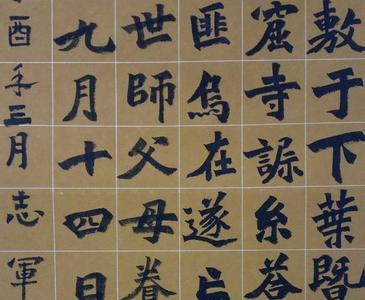 敷于下葉暨
窟寺諔糸答
匪烏在遂亡
世師父母眷
九月十四日
酉冬三月志軍